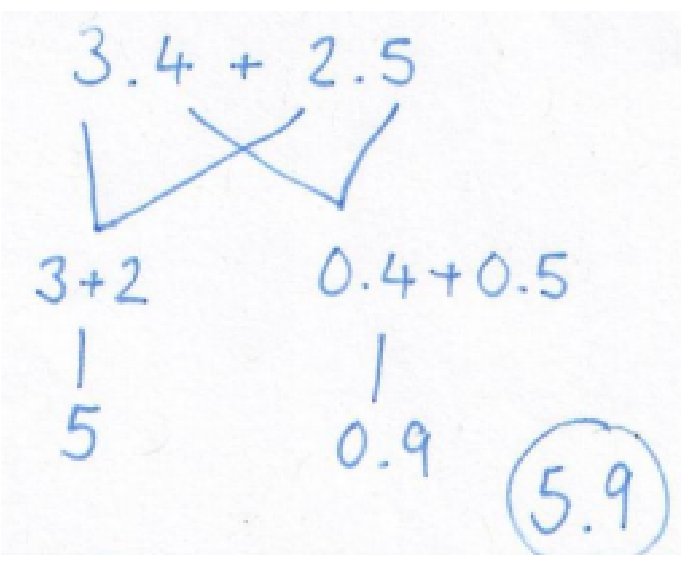 3.4 + 2.5
3+2 0.4+0.5
5 0.9
5.9